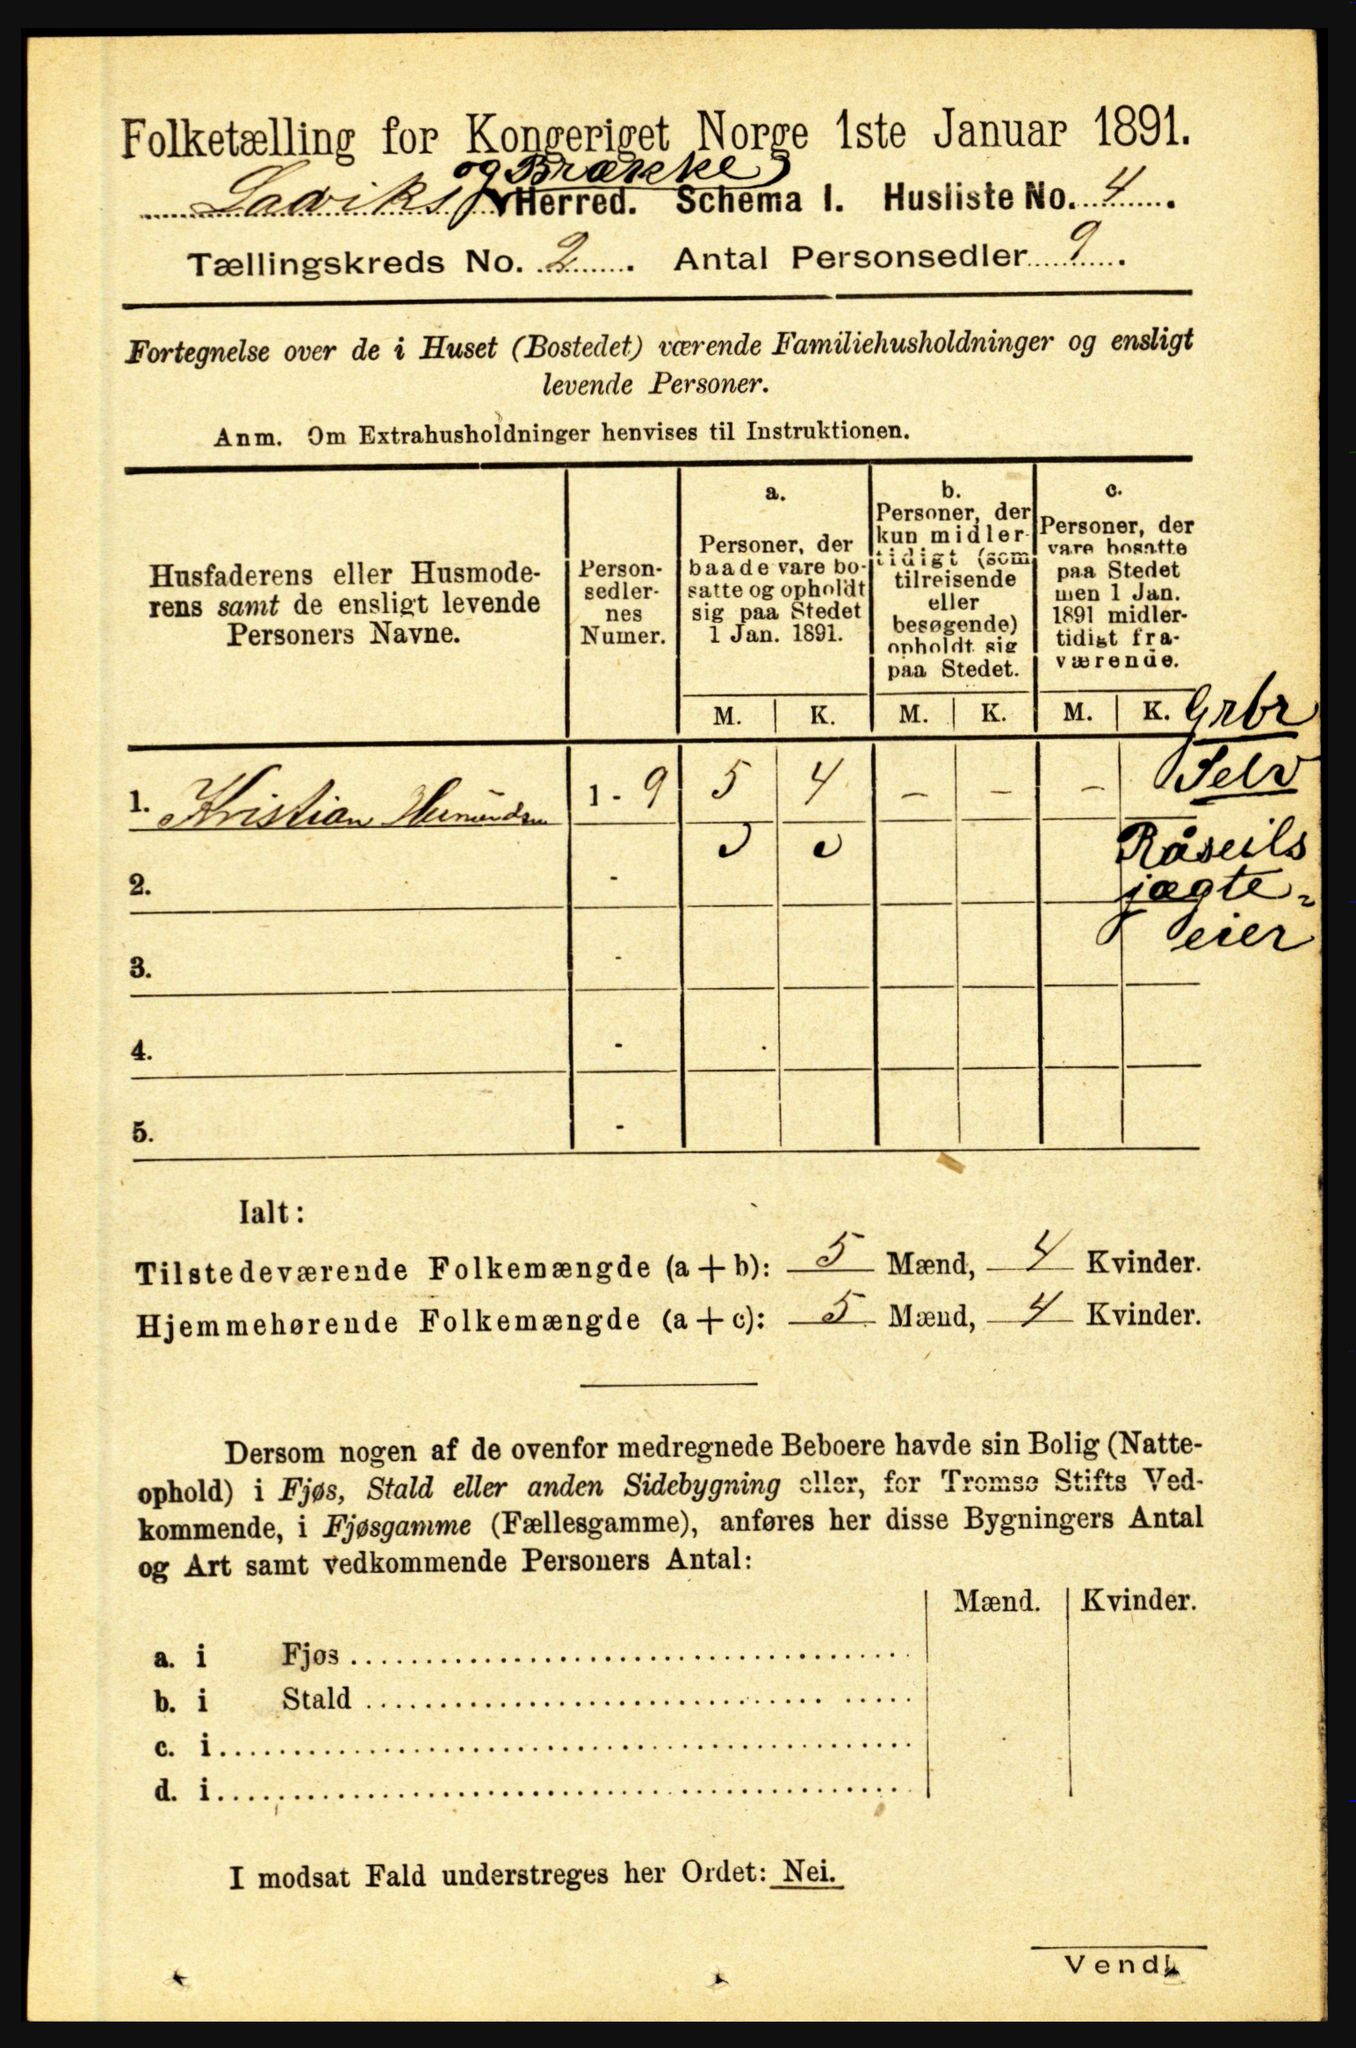 Folketælling for Kongeriget Norge 1ste Januar 1891.
og Brække
Ladviks Herred. Schema I. Husliste No. 4.
Tællingskreds No. 2. Antal Personsedler 9.
Fortegnelse over de i Huset (Bostedet) værende Familiehusholdninger og ensligt
levende Personer.
Anm. Om Extrahusholdninger henvises til Instruktionen.
Husfaderens eller Husmode-
rens samt de ensligt levende
Personers Navne.
Person-
sedler-
nes
Numer.
a.
Personer, der
baade vare bo-
satte og opholdt
sig paa Stedet
1 Jan. 1891.
b.
Personer, der
kun midler-
tidigt (som
tilreisende
eller
besøgende)
opholdt sig
paa Stedet.
c.
Personer, der
vare bosatte
paa Stedet
men 1 Jan.
1891 midler-
tidigt fra-
værende.
M. K. M. K. M. K. Grbr
Selv
1. Kristian 1 - 9 5 4 - - -
Råseils
jægte-
eier
2. -
3. -
4. -
5. -
Ialt:
Tilstedeværende Folkemængde (a + b): 5 Mænd, 4 Kvinder.
Hjemmehørende Folkemængde (a + c): 5 Mænd, 4 Kvinder.
Dersom nogen af de ovenfor medregnede Beboere havde sin Bolig (Natte-
ophold) i Fjøs, Stald eller anden Sidebygning eller, for Tromsø Stifts Ved-
kommende, i Fjøsgamme (Fællesgamme), anføres her disse Bygningers Antal
og Art samt vedkommende Personers Antal:
Mænd. Kvinder.
a. i Fjøs
b. i Stald
c. i
d. i
I modsat Fald understreges her Ordet: Nei.
Vend!